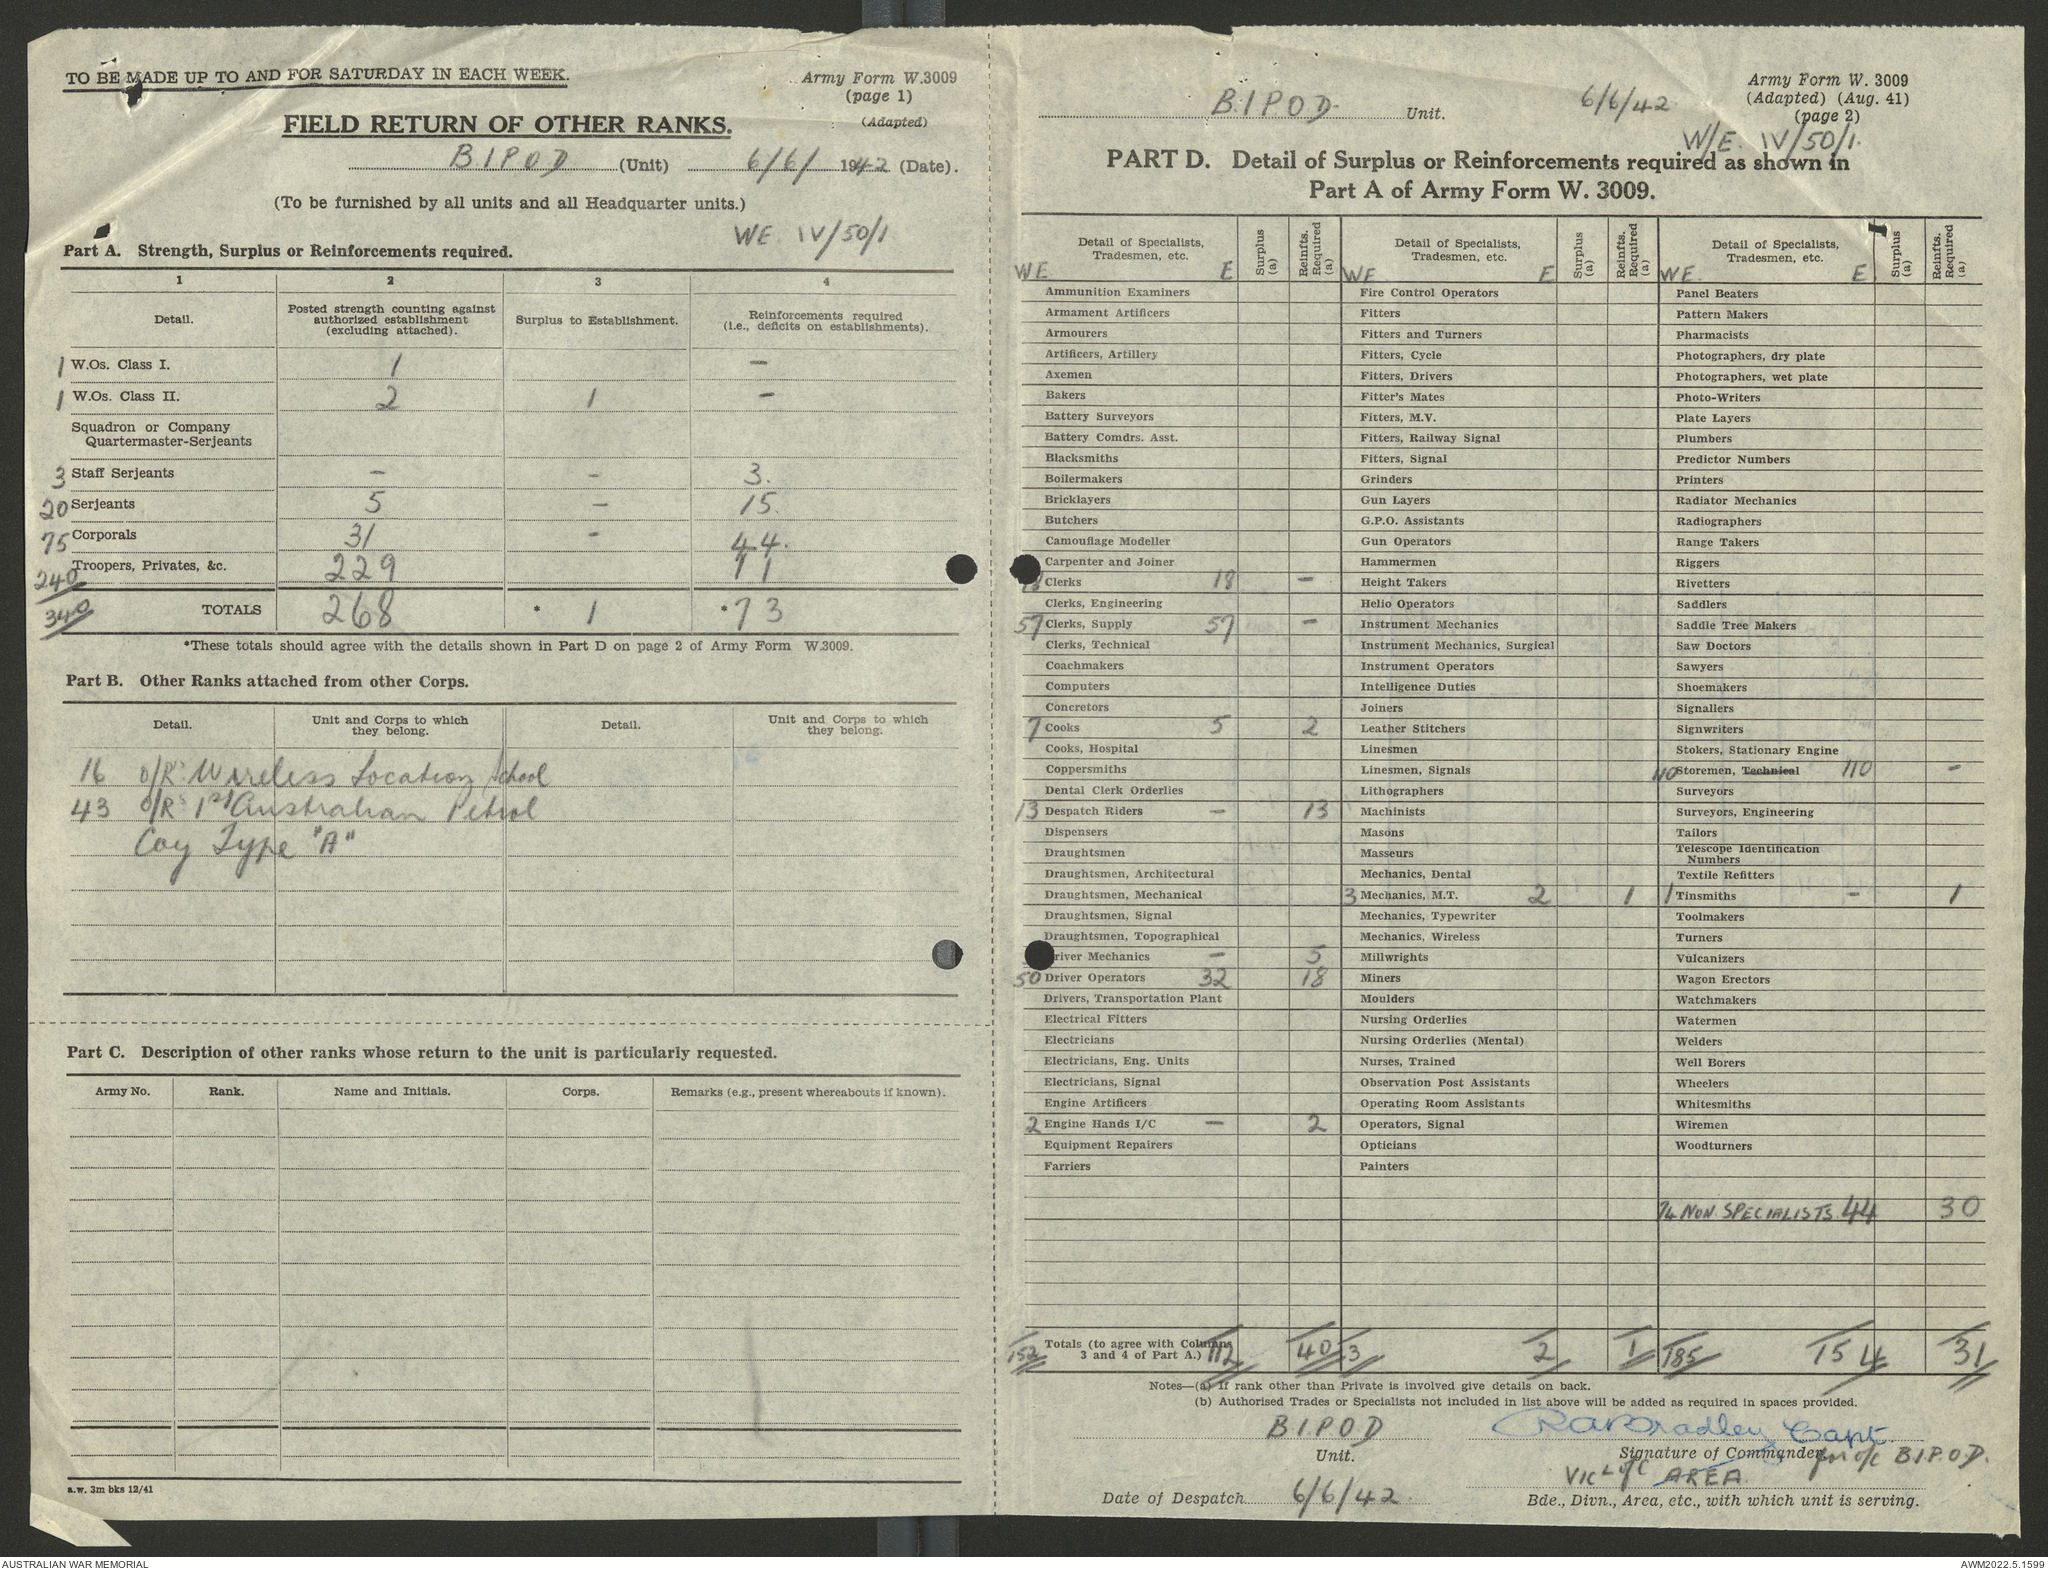 TO BE MADE UP TO AND FOR SATURDAY IN EACH WEEK.
Army Form W.3009
(page 1)
(Adapted)
FIELD RETURN OF OTHER RANKS.
B.I.P.O.D (Unit) 6/6/ 1942 (Date).
(To be furnished by all units and all Headquarter units.)
WE IV/50/1
Part A. Strength, Surplus or Reinforcements required.
1 2 3 4
Detail. Posted strength counting against authorized establishment (excluding attached). Surplus to Establishment. Reinforcements required (i.e., deficits on establishments).
1 W.Os. Class I. 1 -
1 W.Os. Class II. 2 1 -
Squadron or Company
Quartermaster-Serjeants
3 Staff Serjeants - - 3.
20 Serjeants 5 - 15.
75 Corporals 31 - 44.
240 Troopers, Privates, &c. 229 11
340 TOTALS 268 * 1 *73
*These totals should agree with the details shown in Part D on page 2 of Army Form W.3009.
Part B. Other Ranks attached from other Corps.
Detail. Unit and Corps to which they belong. Detail. Unit and Corps to which they belong.
16 O/Rs Wireless Location School
43 O/Rs 1st Australian Petrol
Coy Type "A"
Part C. Description of other ranks whose return to the unit is particularly requested.
Army No. Rank. Name and Initials. Corps. Remarks (e.g., present whereabouts if known).
a.w. 3m bks 12/41
B.I.P.O.D. Unit. 6/6/42
Army Form W. 3009
(Adapted) (Aug. 41)
(page 2)
W/E. IV/50/1.
PART D. Detail of Surplus or Reinforcements required as shown in
Part A of Army Form W. 3009.
WE Detail of Specialists, Tradesmen, etc. E Surplus (a) Reinfts. Required (a)
Ammunition Examiners
Armament Artificers
Armourers
Artificers, Artillery
Axemen
Bakers
Battery Surveyors
Battery Comdrs. Asst.
Blacksmiths
Boilermakers
Bricklayers
Butchers
Camouflage Modeller
Carpenter and Joiner
Clerks 18 -
Clerks, Engineering
57 Clerks, Supply 57 -
Clerks, Technical
Coachmakers
Computers
Concretors
7 Cooks 5 2
Cooks, Hospital
Coppersmiths
Dental Clerk Orderlies
13 Despatch Riders - 13
Dispensers
Draughtsmen
Draughtsmen, Architectural
Draughtsmen, Mechanical
Draughtsmen, Signal
Draughtsmen, Topographical
river Mechanics - 5
50 Driver Operators 32 18
Drivers, Transportation Plant
Electrical Fitters
Electricians
Electricians, Eng. Units
Electricians, Signal
Engine Artificers
2 Engine Hands I/C - 2
Equipment Repairers
Farriers
152 Totals (to agree with Columns 3 and 4 of Part A.) 112 40
WE Detail of Specialists, Tradesmen, etc. E Surplus (a) Reinfts. Required (a)
Fire Control Operators
Fitters
Fitters and Turners
Fitters, Cycle
Fitters, Drivers
Fitter's Mates
Fitters, M.V.
Fitters, Railway Signal
Fitters, Signal
Grinders
Gun Layers
G.P.O. Assistants
Gun Operators
Hammermen
Height Takers
Helio Operators
Instrument Mechanics
Instrument Mechanics, Surgical
Instrument Operators
Intelligence Duties
Joiners
Leather Stitchers
Linesmen
Linesmen, Signals
Lithographers
Machinists
Masons
Masseurs
Mechanics, Dental
3 Mechanics, M.T. 2 1
Mechanics, Typewriter
Mechanics, Wireless
Millwrights
Miners
Moulders
Nursing Orderlies
Nursing Orderlies (Mental)
Nurses, Trained
Observation Post Assistants
Operating Room Assistants
Operators, Signal
Opticians
Painters
3 2 1
WE Detail of Specialists, Tradesmen, etc. E Surplus (a) Reinfts. Required (a)
Panel Beaters
Pattern Makers
Pharmacists
Photographers, dry plate
Photographers, wet plate
Photo-Writers
Plate Layers
Plumbers
Predictor Numbers
Printers
Radiator Mechanics
Radiographers
Range Takers
Riggers
Rivetters
Saddlers
Saddle Tree Makers
Saw Doctors
Sawyers
Shoemakers
Signallers
Signwriters
Stokers, Stationary Engine
110 Storemen, Technical 110 -
Surveyors
Surveyors, Engineering
Tailors
Telescope Identification
Numbers
Textile Refitters
1 Tinsmiths - 1
Toolmakers
Turners
Vulcanizers
Wagon Erectors
Watchmakers
Watermen
Welders
Well Borers
Wheelers
Whitesmiths
Wiremen
Woodturners
74 NON SPECIALISTS 44 30
185 154 31
Notes—(a) If rank other than Private is involved give details on back.
(b) Authorised Trades or Specialists not included in list above will be added as required in spaces provided.
B.I.P.O.D
Unit.
RABradley Capt.
Signature of Commander for o/c B.I.P.O.D.
VIC L of C AREA
Date of Despatch 6/6/42.
Bde., Divn., Area, etc., with which unit is serving.
AUSTRALIAN WAR MEMORIAL
AWM2022.5.1599